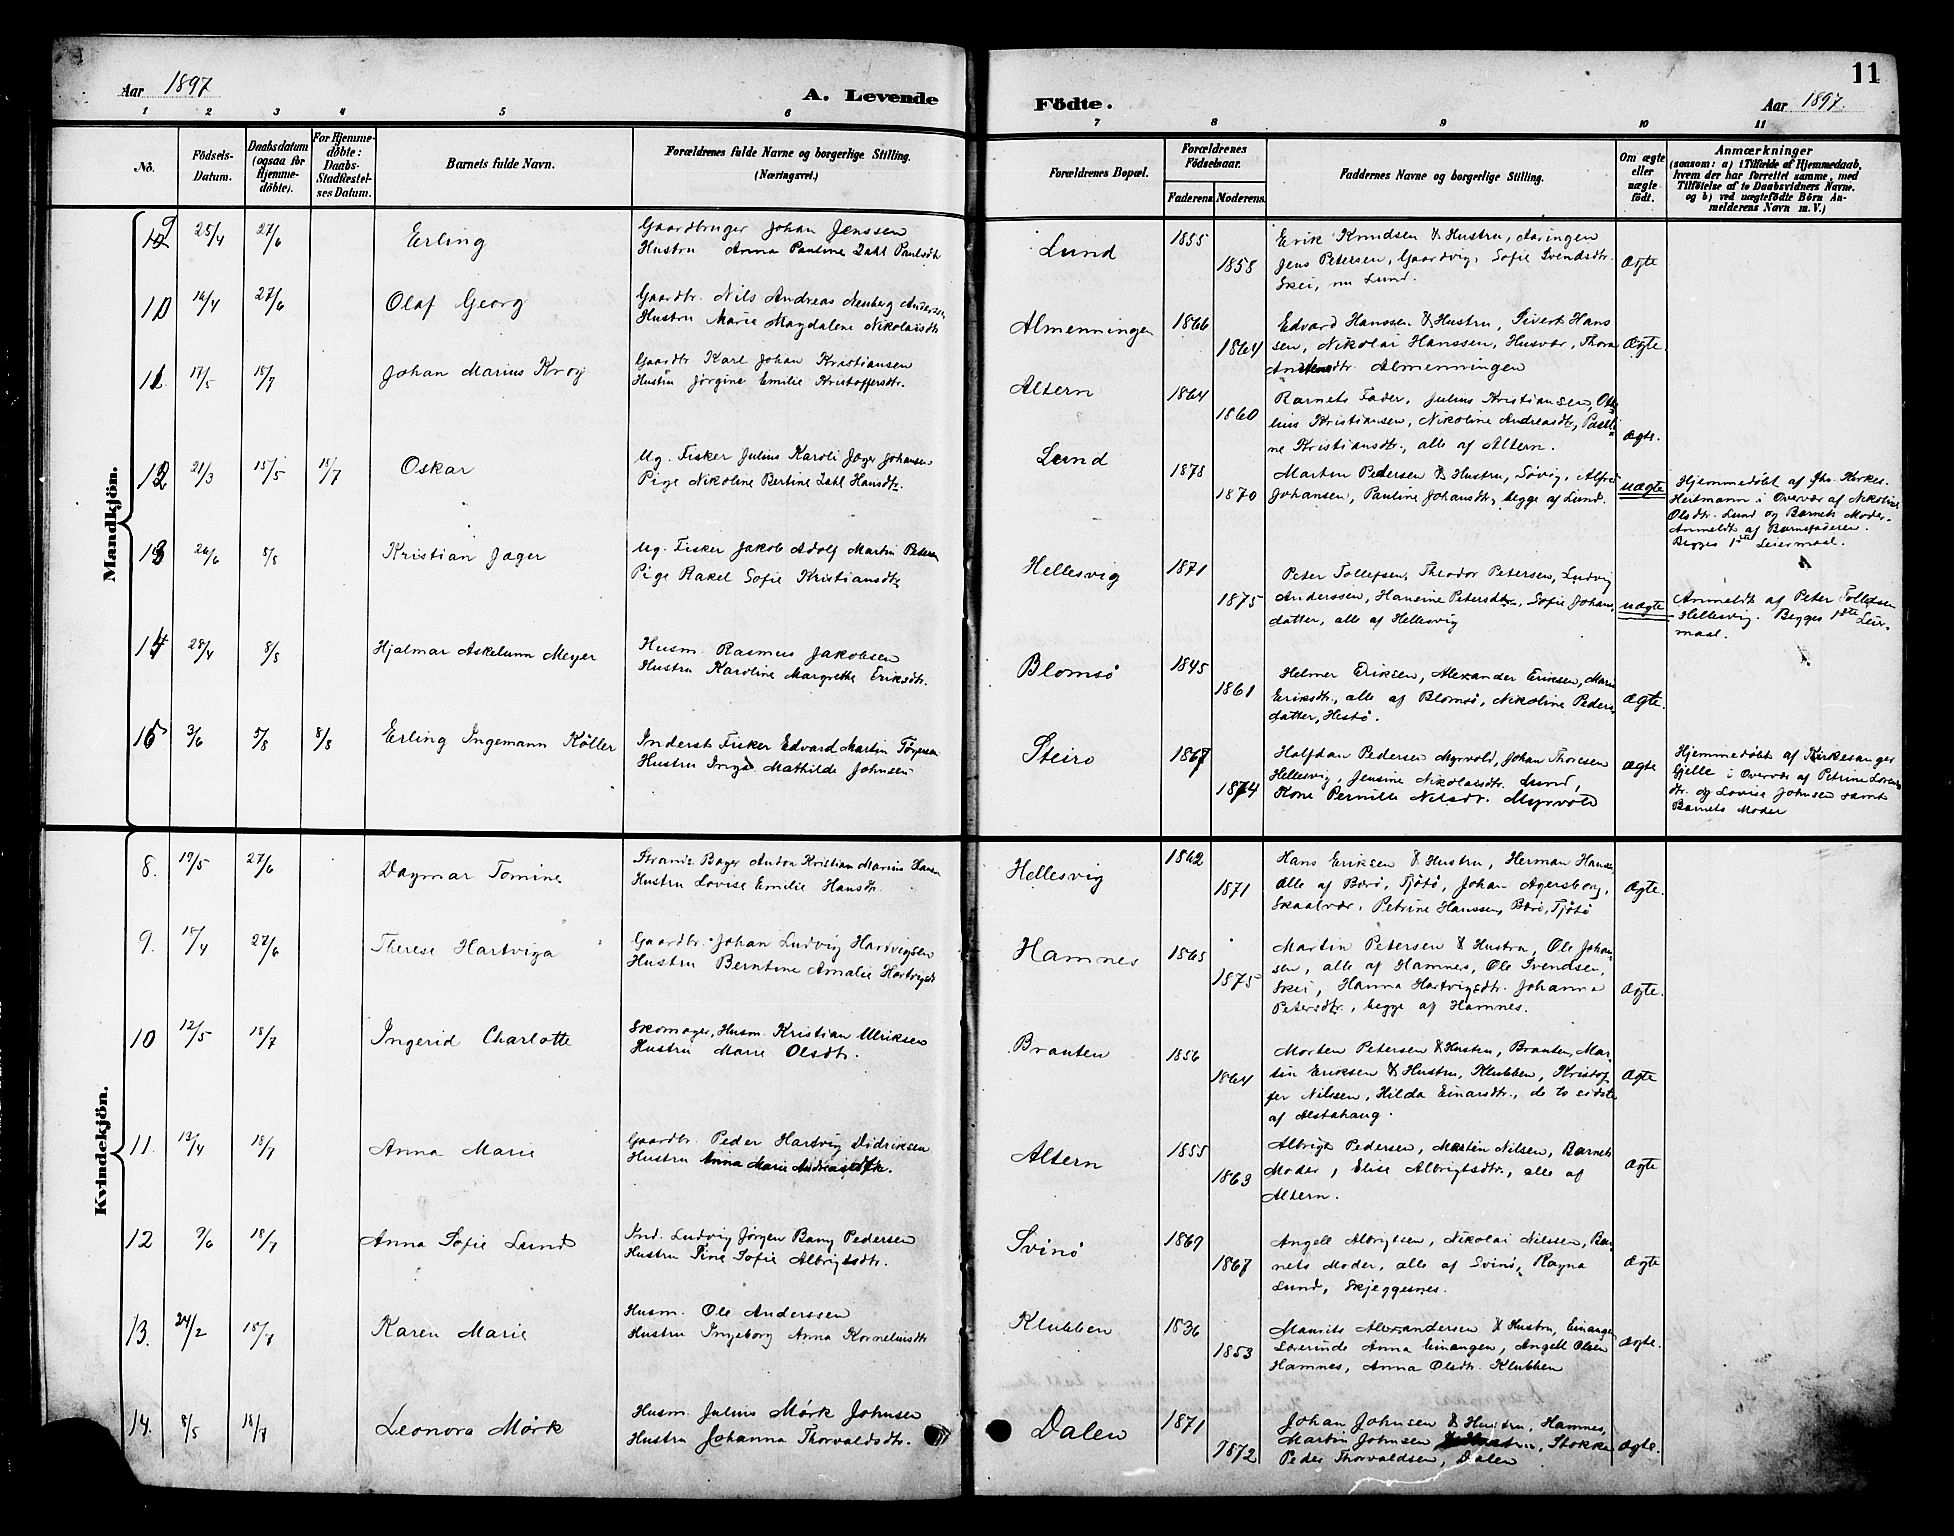 Aar 1897
A. Levende
1 2 3 4 5 6
No.
Födsels-
Datum.
Daabsdatum
(ogsaa för
Hjemme-
döbte).
For Hjemme-
döbte:
Daabs-
Stadfæstel-
ses Datum.
Barnets fulde Navn.
Forældrenes fulde Navne og borgerlige Stilling.
(Næringsvei.)
11
Födte.
Aar 1897.
7 8 9 10 11
Forældrenes Bopæl.
Forældrenes
Födselsaar.
Faderens Moderens
Faddernes Navne og borgerlige Stilling.
Om ægte
eller
uægte
födt.
Anmærkninger
(saasom: a) i Tilfælde af Hjemmedaab,
hvem der har forrettet samme, med
Tilföielse af to Daabsvidners Navne.
og b) ved uægtefödte Börn An-
melderens Navn m. V.)
Mandkjön.
25/4 27/6 Erling
Gaardbruger Johan Jenssen
Hustru Anna Pauline Zahl Paulsdtr
Lund 1855 1858
Erik Knudsen & Hustru, Aaringen
Jens Petersen, Gaardvig, Sofie Svendsdtr.
Skei, nu Lund.
Ægte
10 14/4 27/6 Olaf Georg
Gaardbr. Nils Andreas Neuberg Anderssen
Hustru Marie Magdalene Nikolaisdtr
Almenningen 1866 1864
Edvard Hanssen & Hustru, Sivert Hans
sen, Nikolai Hanssen, Husvær, Thora
Andersdtr. Almenningen
Ægte
11. 17/5 18/7 Johan Marius Krog
Gaardbr Karl Johan Kristiansen
Hustru Jörgine Emilie Kristoffersdtr.
Altern 1864 1860
Barnets Fader, Julius Kristiansen, Ot
lius Kristiansen, Nikoline Andreasdtr, Pauli
ne Kristiansdtr, alle af Altern.
Ægte.
12 21/3 15/5 18/7 Oskar
Ug. Fisker Julius Karoli Jæger Johansen
Pige Nikoline Bertine Zahl Hansdtr.
Lund 1878 1870
Martin Pedersen & Hustru, Sövig, Alfred
Johansen, Pauline Johansdtr, begge af Lund.
uægte
Hjemmedöbt af Kirkes.
Heitmann i Overvær af Nikoline
Olsdtr. Lund og Barnets Moder.
Anmeldt af Barnefaderen.
Begges 1ste Leiermaal.
13 26/6 8/8 Kristian Jæger
Ug. Fisker Jakob Adolf Martin Petersen
Pige Rakel Sofie Kristiansdtr
Hellesvig 1871 1875
Peter Tollefsen, Theodor Petersen, Ludvig
Anderssen, Hansine Petersdtr., Sofie Johans
datter, alle af Hellesvig
uægte
Anmeldt af Peter Tollefsen
Hellesvig. Begges 1ste Leier-
maal.
14 28/4 8/8 Hjalmar Askelunn Meyer
Husm. Rasmus Jakobsen
Hustru Karoline Margrethe Eriksdtr.
Blomsö 1845 1861
Helmer Eriksen, Alexander Eriksen, Marie
Eriksdtr., alle af Blomsö, Nikoline Peders
datter, Hestö.
Ægte.
15 3/6 5/8 8/8 Erling Ingemann Köller
Inderst Fisker Edvard Martin Törgersen
Hustru Inga Mathilde Johnsen
Steiro 1867 1874
Halfdan Pedersen Myrvold, Johan Thoresen
Hellesvig, Jensine Nikolaisdtr. Lund,
Kone Pernille Nilsdtr. Myrvold
Ægte
Hjemmedöbt af Kirkesanger
Gjelle i Overvær af Petrine Lorens
dtr. og Lovise Johnsen samt
Barnets Moder
Kvindekjön.
8. 19/5 27/6 Dagmar Tomine
Strands. Bager Anton Kristian Marius Hansen
Hustru Lovise Emilie Hansdtr.
Hellesvig 1862 1871
Hans Eriksen & Hustru, Herman Hansen
Alle af Bærö, Tjötö, Johan Agersborg,
Skaalvær, Petrine Hanssen, Bærö, Tjötö
Ægte.
9. 18/4 27/6 Therese Hartviga
Gaardbr. Johan Ludvig Hartvigsen
Hustru Berntine Amalie Hartvigsdtr
Hamnes 1865 1875
Martin Petersen & Hustru, Ole Johan-
sen, alle af Hamnes, Ole Svendsen,
Skei, Hanna Hartvigsdtr. Johanna
Petersdtr., begge af Hamnes.
Ægte.
10 12/5 18/7 Ingerid Charlotte
Skomager, Husm. Kristian Ulriksen
Hustru Marie Olsdtr.
Brauten 1856 1864
Morten Petersen & Hustru, Brauten, Mar-
tin Eriksen & Hustru, Klubben, Kristof
fer Nilssen, Hilda Einarsdtr., de to sidste
af Alstahaug.
Ægte
11. 13/4 18/7 Anna Marie
Gaardbr. Peder Hartvig Didriksen
Hustru Anna Marie Andreasdtr.
Altern 1855 1863
Albrigt Pedersen, Martin Nilsen, Barnets
Moder, Elise Albrigtsdtr., alle af
Altern.
Ægte
12 9/6 18/7 Anna Sofie Lund
Ind. Ludvig Jörgen Bang Pedersen
Hustru Tine Sofie Albrigtsdtr.
Svinö 1869 1867
Angell Albrigtsen, Nikolai Nilssen, Bar-
nets Moder, alle af Svinö, Ragna
Lund, Skjeggesnes.
Ægte
13. 24/2 18/7 Karen Marie
Husm. Ole Anderssen
Hustru Ingeborg Anna Korneliusdtr
Klubben 1836 1853
Maurits Alexandersen & Hustru, Einangen
Lærerinde Anna Einangen, Angell Olsen
Hamnes, Anna Olsdtr. Klubben
Ægte.
14. 8/5 18/7 Leonora Mörk
Husm. Julius Mörk Johnsen
Hustru Johanna Thorvaldsdtr.
Dalen 1871 1872
Johan Johnsen & Hustru, Hamnes,
Martin Johnsen Stokka
Peder Thorvaldsen, Dalen
Ægte.